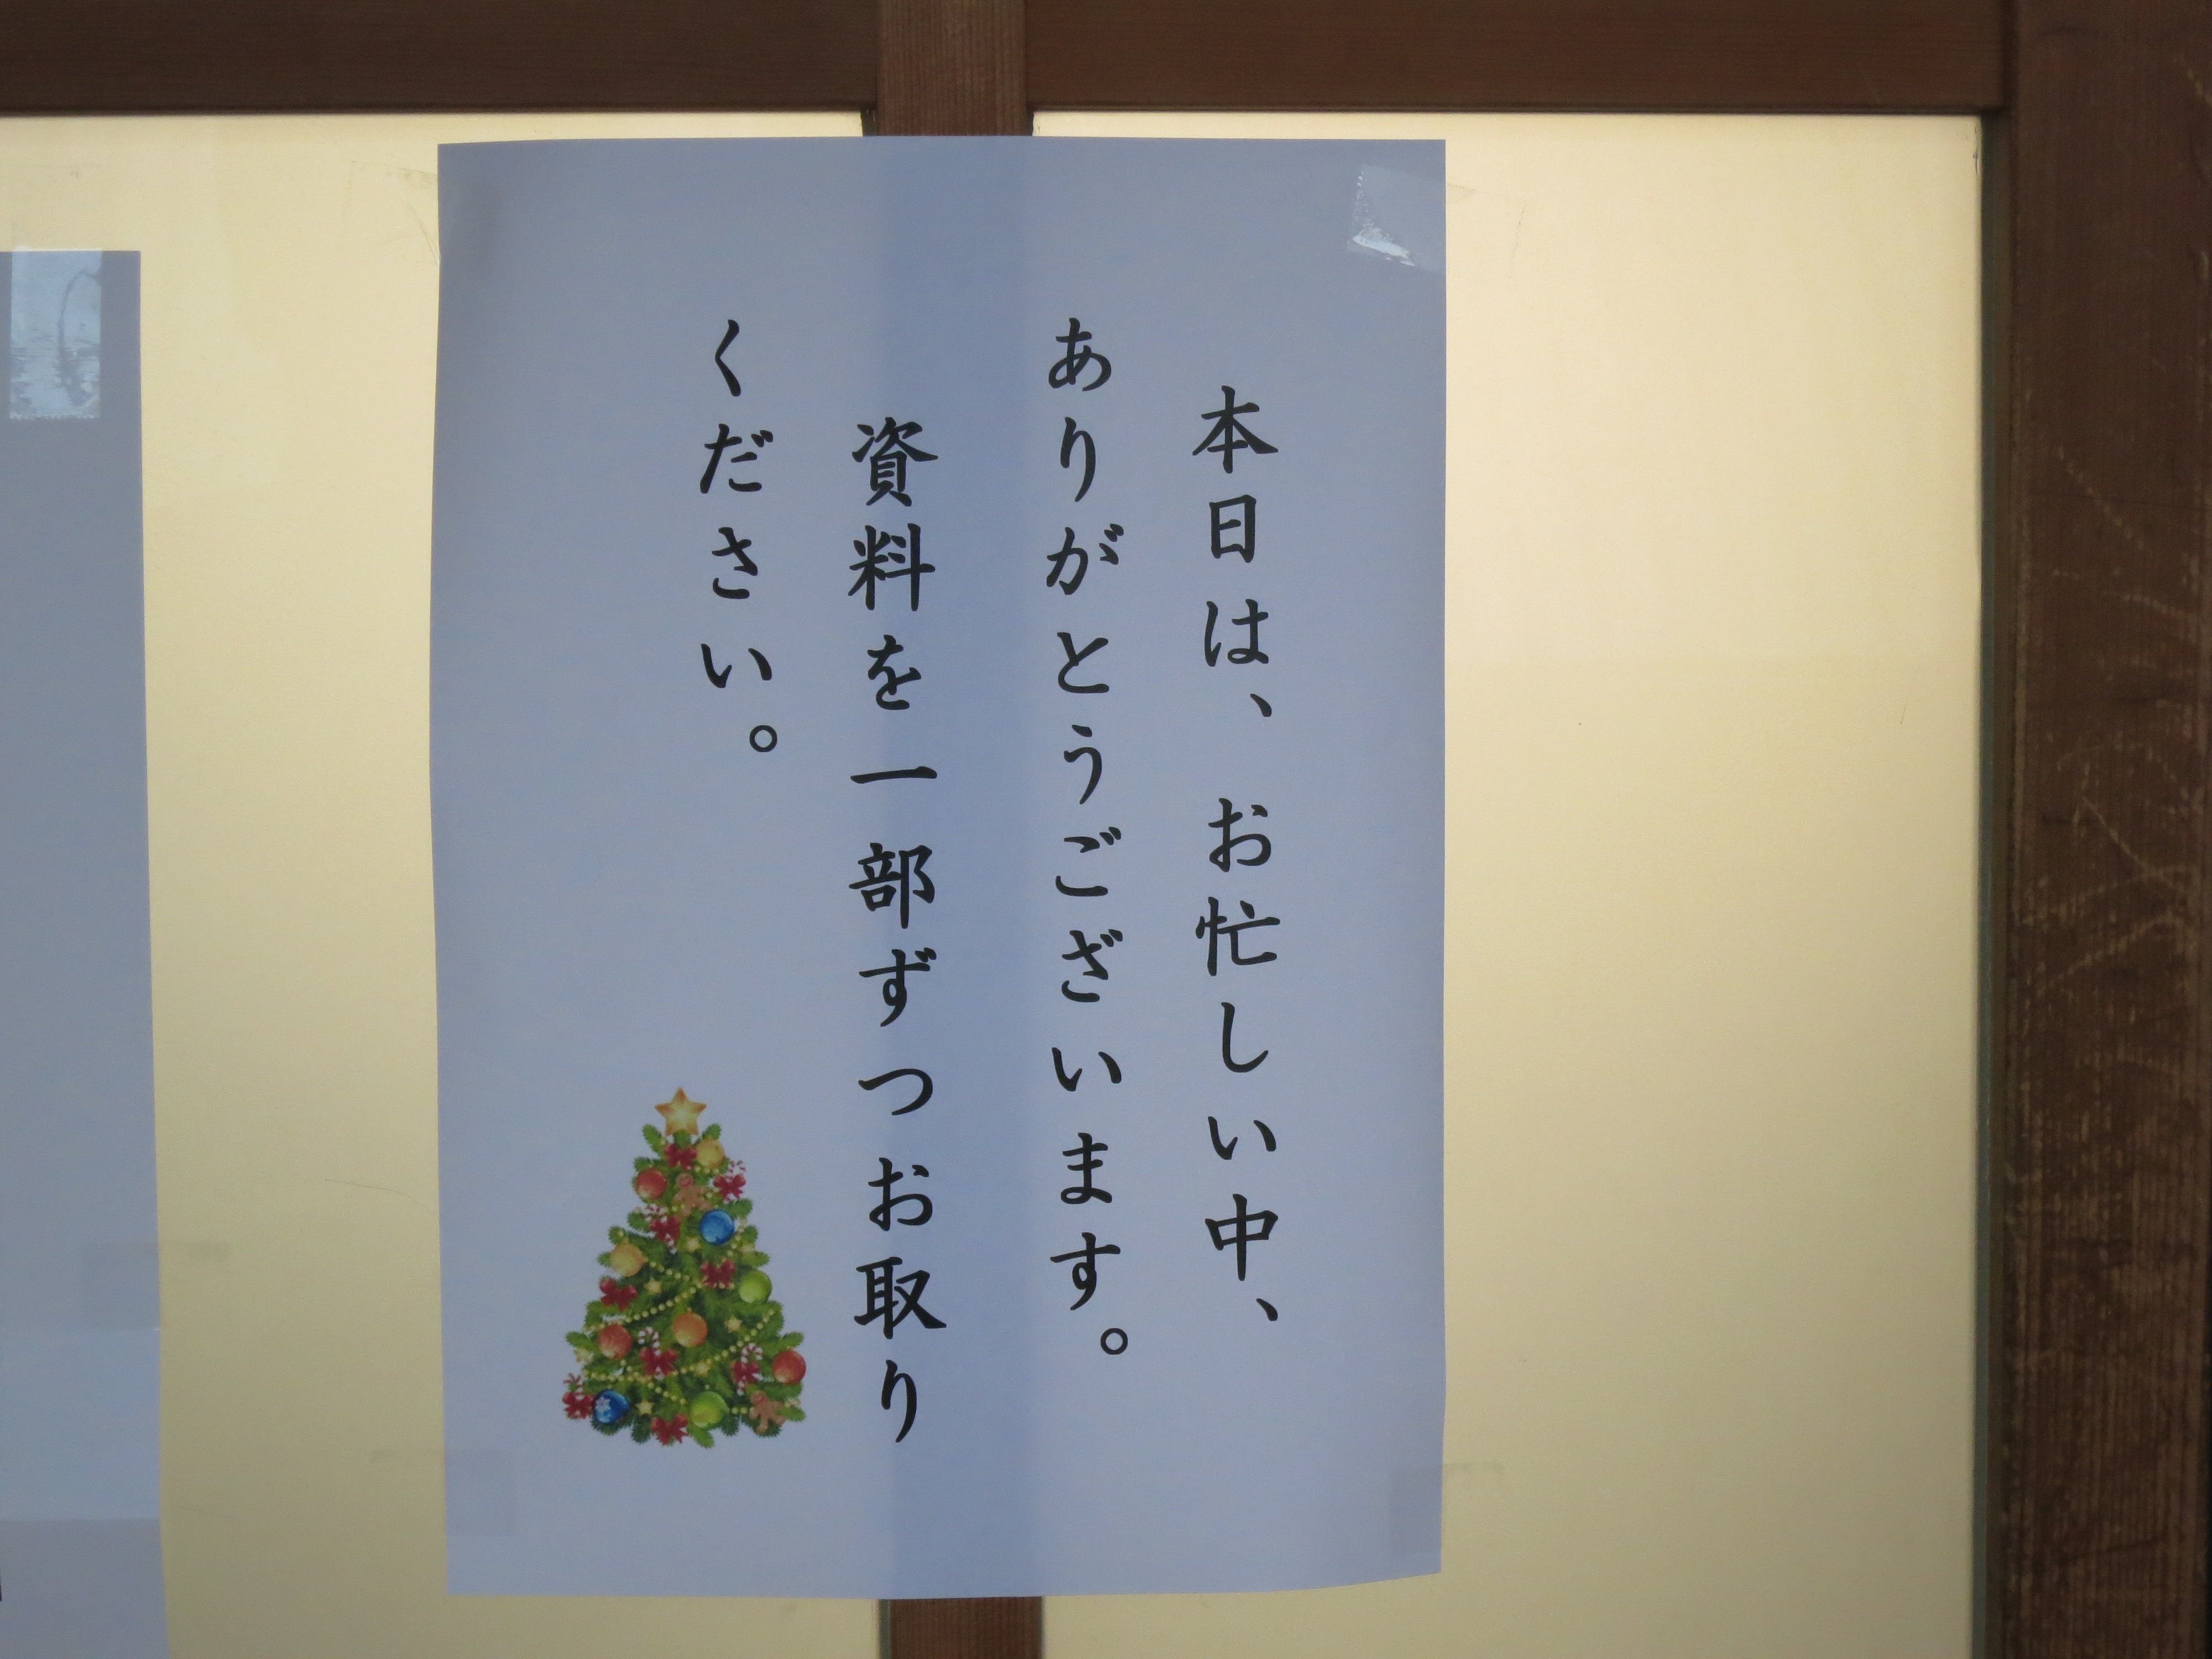 本日は、お忙しい中、
ありがとうございます。
資料を一部ずつお取り
ください。